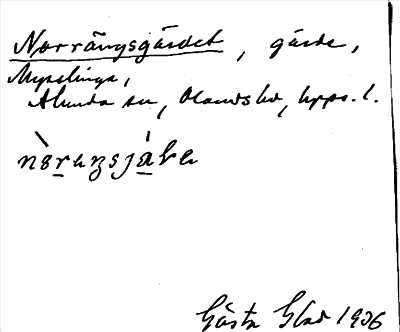 Norrängsgärdet, gärde,
Mysslinge,
Alunda sn, Olands hd, Upps. l.
Gösta Glad 1936